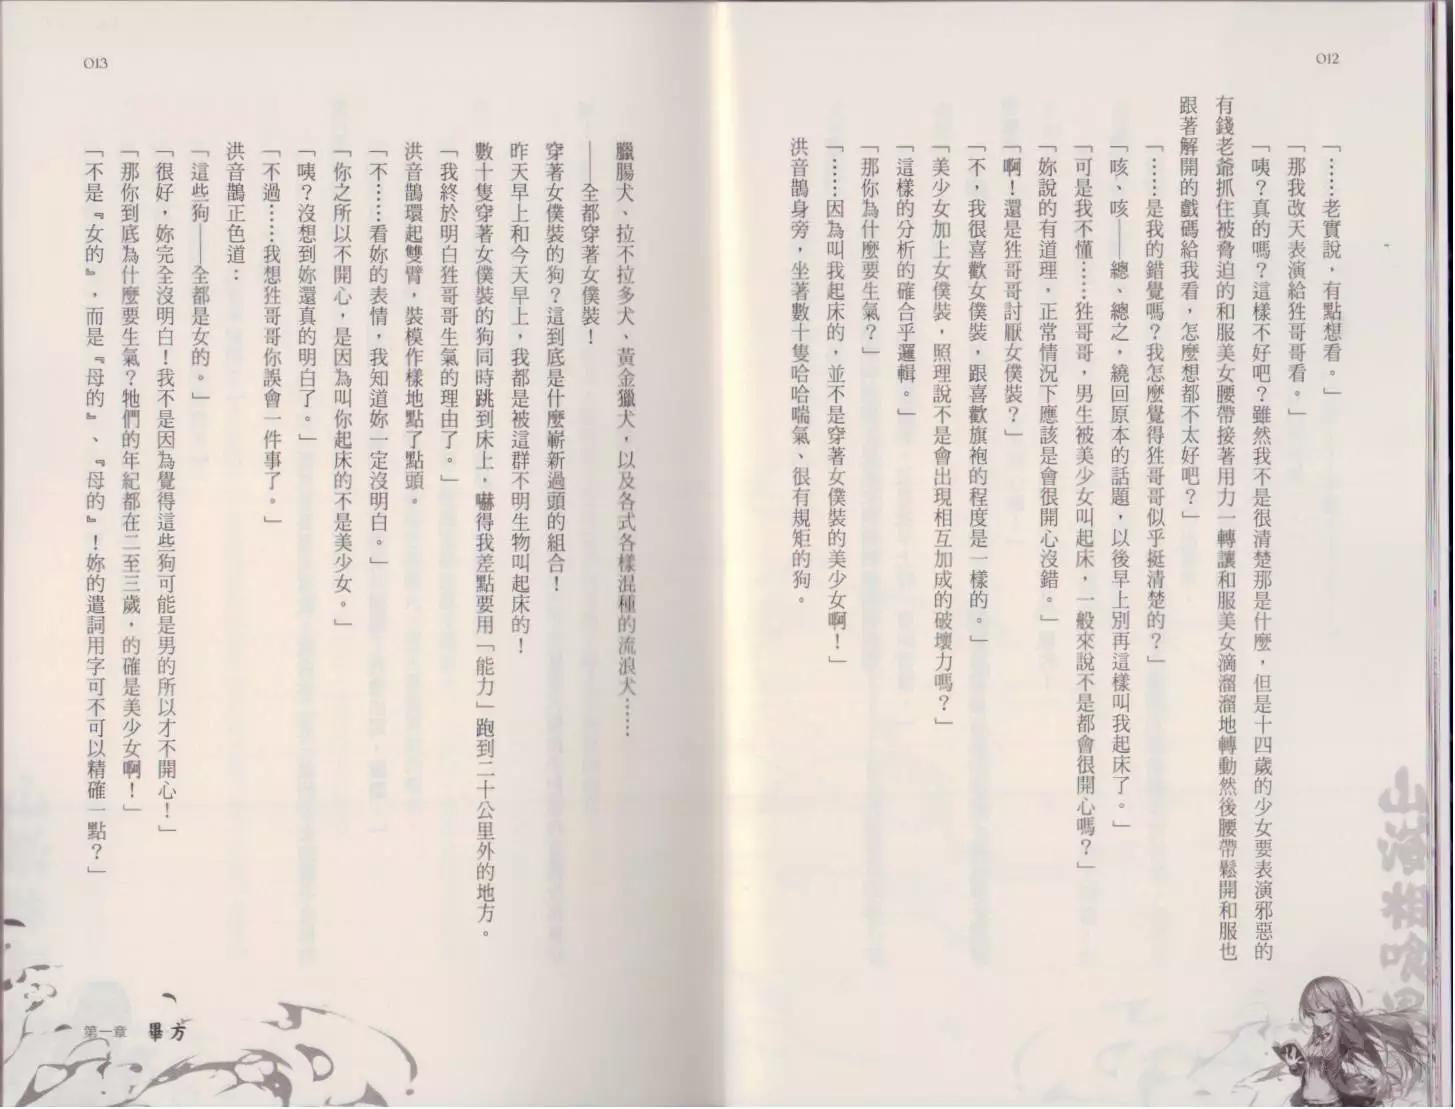 012
「……老實說，有點想看。」
「那我改天表演給狌哥哥看。」
「咦？真的嗎？這樣不好吧？雖然我不是很清楚那是什麼，但是十四歲的少女要表演邪惡的
有錢老爺抓住被脅迫的和服美女腰帶接著用力一轉讓和服美女滴溜溜地轉動然後腰帶鬆開和服也
跟著解開的戲碼給我看，怎麼想都不太好吧？」
「……是我的錯覺嗎？我怎麼覺得狌哥哥似乎挺清楚的？」
「咳、咳——總、總之，繞回原本的話題，以後早上別再這樣叫我起床了。」
「可是我不懂……狌哥哥，男生被美少女叫起床，一般來說不是都會很開心嗎？」
「妳說的有道理，正常情況下應該是會很開心沒錯。」
「啊！還是狌哥哥討厭女僕裝？」
「不，我很喜歡女僕裝，跟喜歡旗袍的程度是一樣的。」
「美少女加上女僕裝，照理說不是會出現相互加成的破壞力嗎？」
「這樣的分析的確合乎邏輯。」
「那你為什麼要生氣？」
「……因為叫我起床的，並不是穿著女僕裝的美少女啊！」
洪音鵲身旁，坐著數十隻哈哈喘氣、很有規矩的狗。
013
臘腸犬、拉不拉多犬、黃金獵犬，以及各式各樣混種的流浪犬……
——全都穿著女僕裝！
穿著女僕裝的狗？這到底是什麼嶄新過頭的組合！
昨天早上和今天早上，我都是被這群不明生物叫起床的！
數十隻穿著女僕裝的狗同時跳到床上，嚇得我差點要用「能力」跑到二十公里外的地方。
「我終於明白狌哥哥生氣的理由了。」
洪音鵲環起雙臂，裝模作樣地點了點頭。
「不……看妳的表情，我知道妳一定沒明白。」
「你之所以不開心，是因為叫你起床的不是美少女。」
「咦？沒想到妳還真的明白了。」
「不過……我想狌哥哥你誤會一件事了。」
洪音鵲正色道：
「這些狗——全都是女的。」
「很好，妳完全沒明白！我不是因為覺得這些狗可能是男的所以才不開心！」
「那你到底為什麼要生氣？牠們的年紀都在二至三歲，的確是美少女啊！」
「不是『女的』，而是『母的』、『母的』！妳的遣詞用字可不可以精確一點？」
第一章 畢方